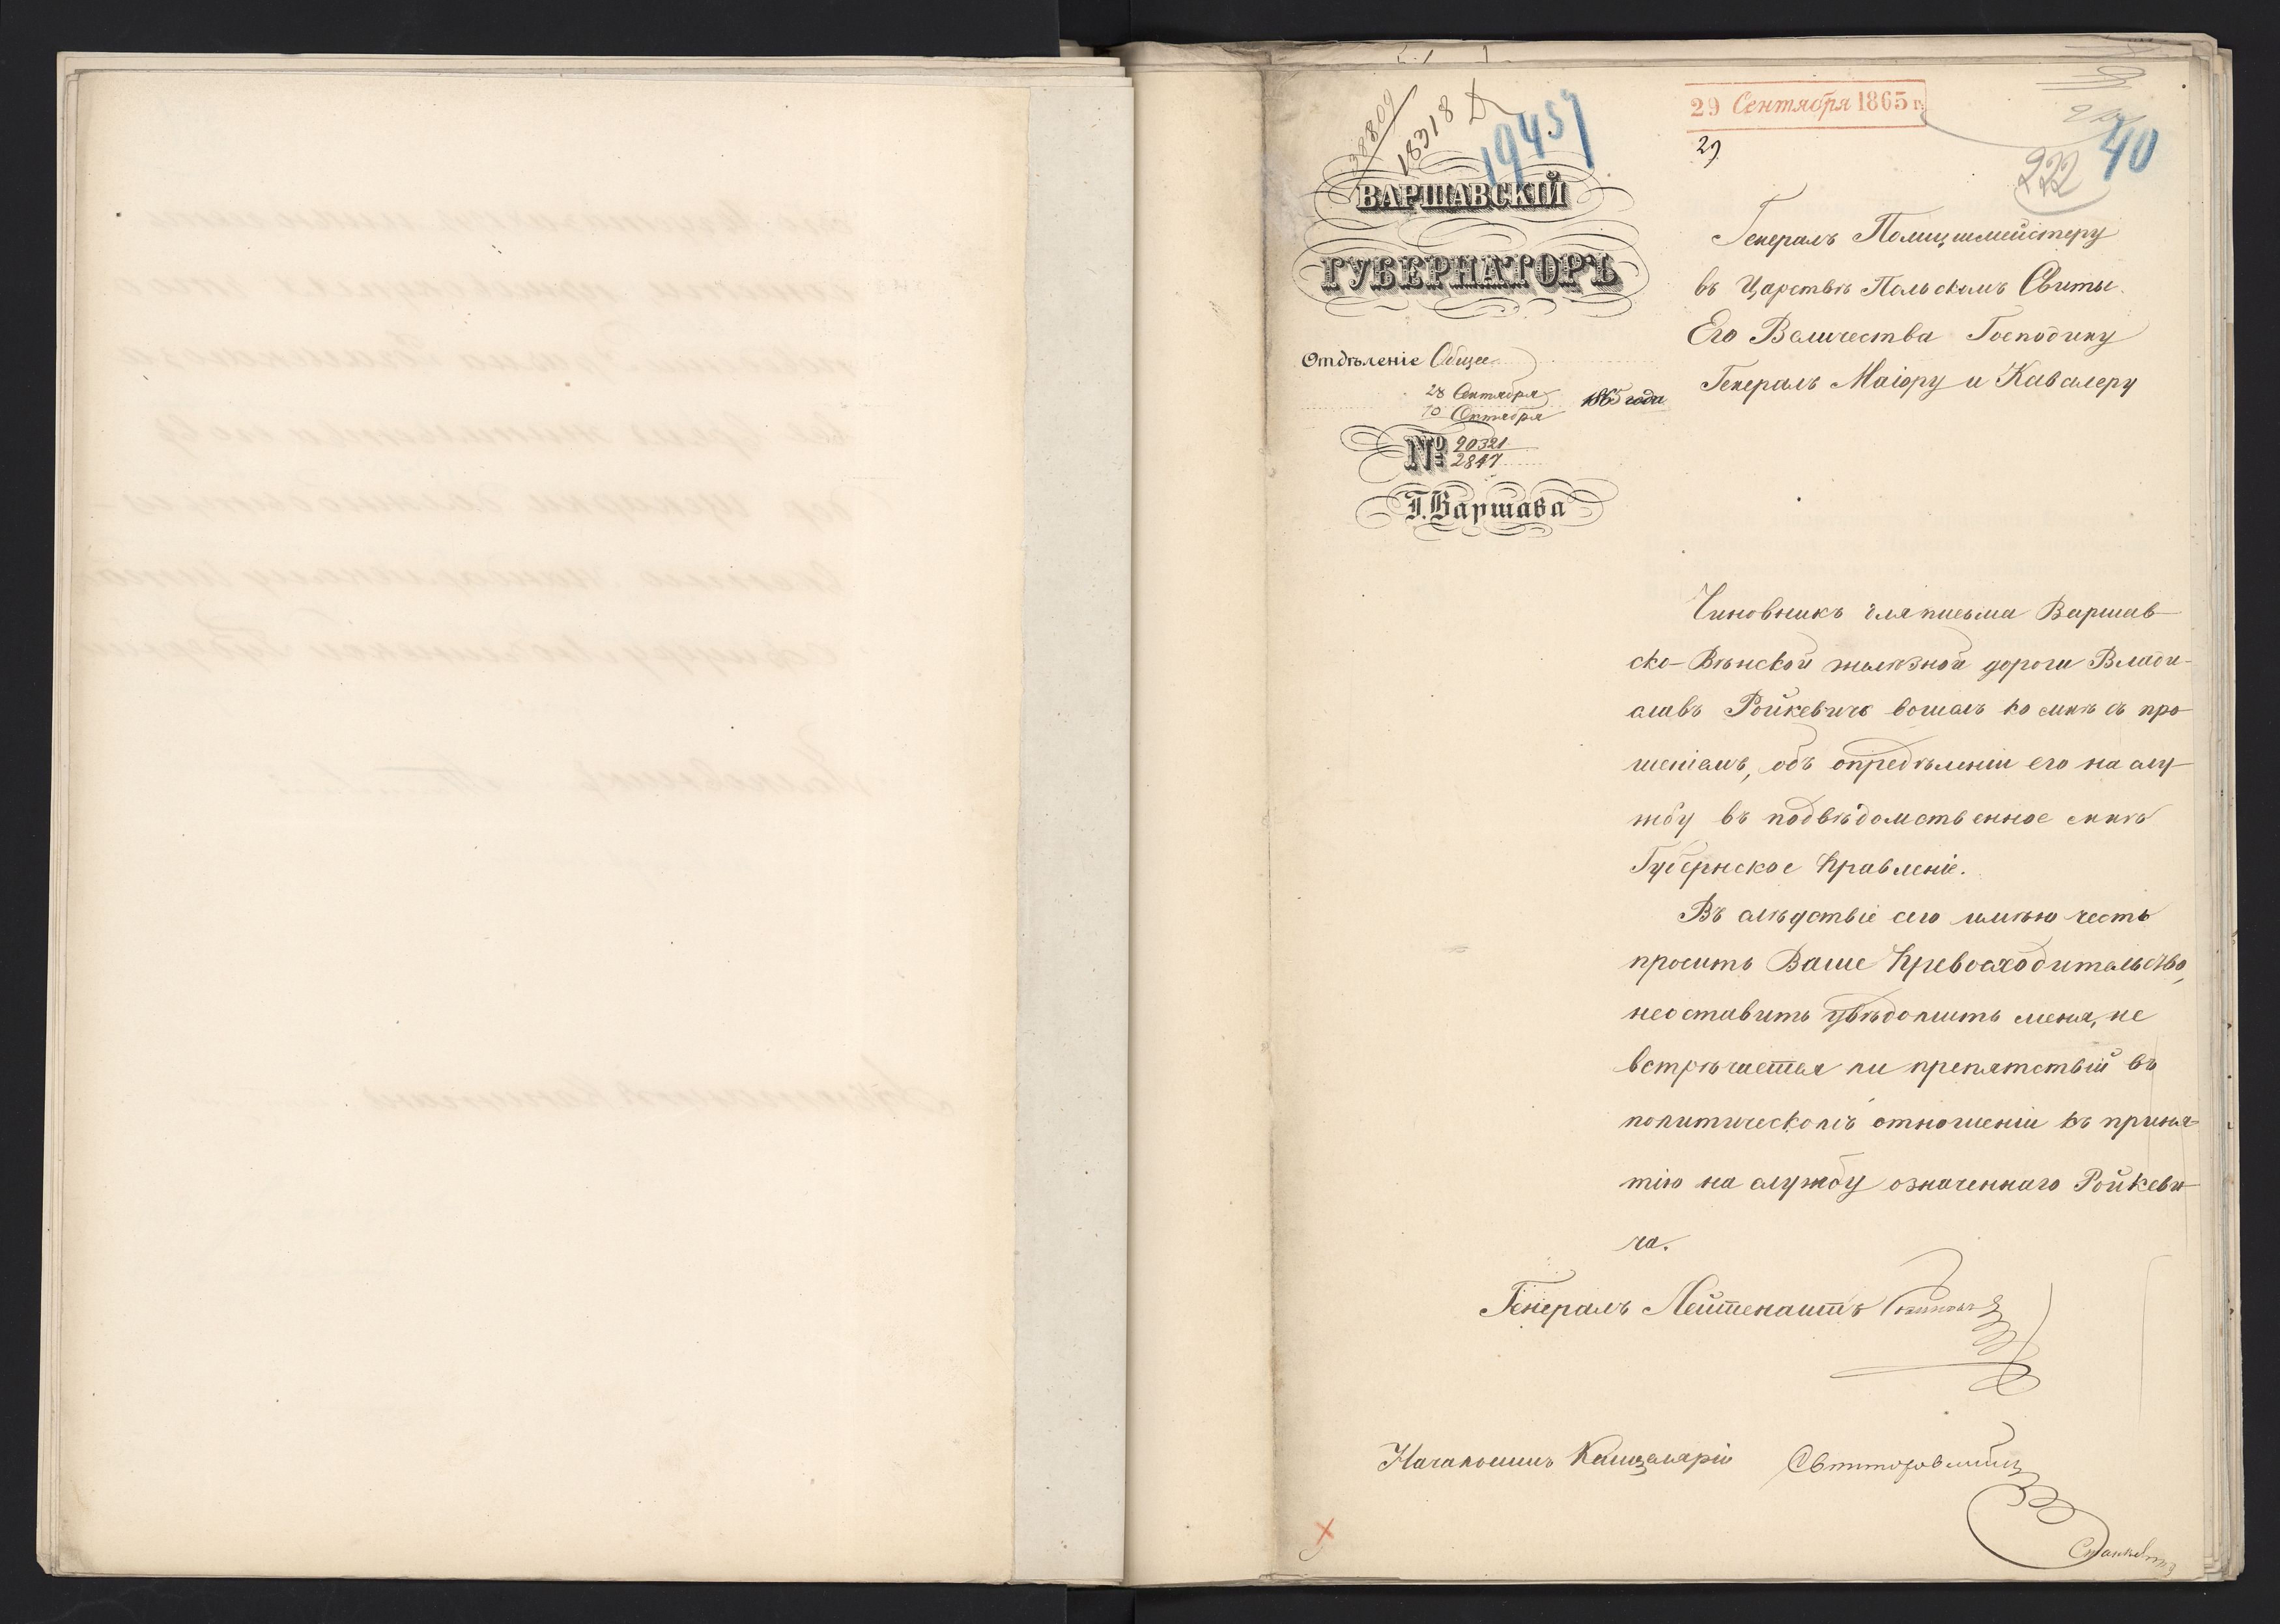 38809
18318
19457
29 Сентября 1865 г.
29
222
40
ВАРШАВСКІЙ
ГУБЕРНАТОРЪ
Отдѣленіе Общее
28 Сентября
10 Октября
1865 года
№ 20321
2847
Г. Варшава
Генералъ Полицшмейстеру
въ Царствѣ Польскомъ Свиты
Его Величества Господину
Генералъ Маіору и Кавалеру
Чиновникъ для письма Варшав-
ско-Вѣнской желѣзной дороги Влади-
славъ Ройкевичъ вошелъ ко мнѣ съ про
шеніемъ, объ опредѣленіи его на слу-
жбу въ подвѣдомственное мнѣ
Губернское Правленіе.
Въ слѣдствіе сего имѣю честь
просить Ваше Превосходительство,
неоставить увѣдомить меня, не
встрѣчается ли препятствій въ
политическомъ отношеніи къ приня-
тію на службу означеннаго Ройкеви-
ча.
Генералъ Лейтенантъ
Начальникъ Канцеляріи